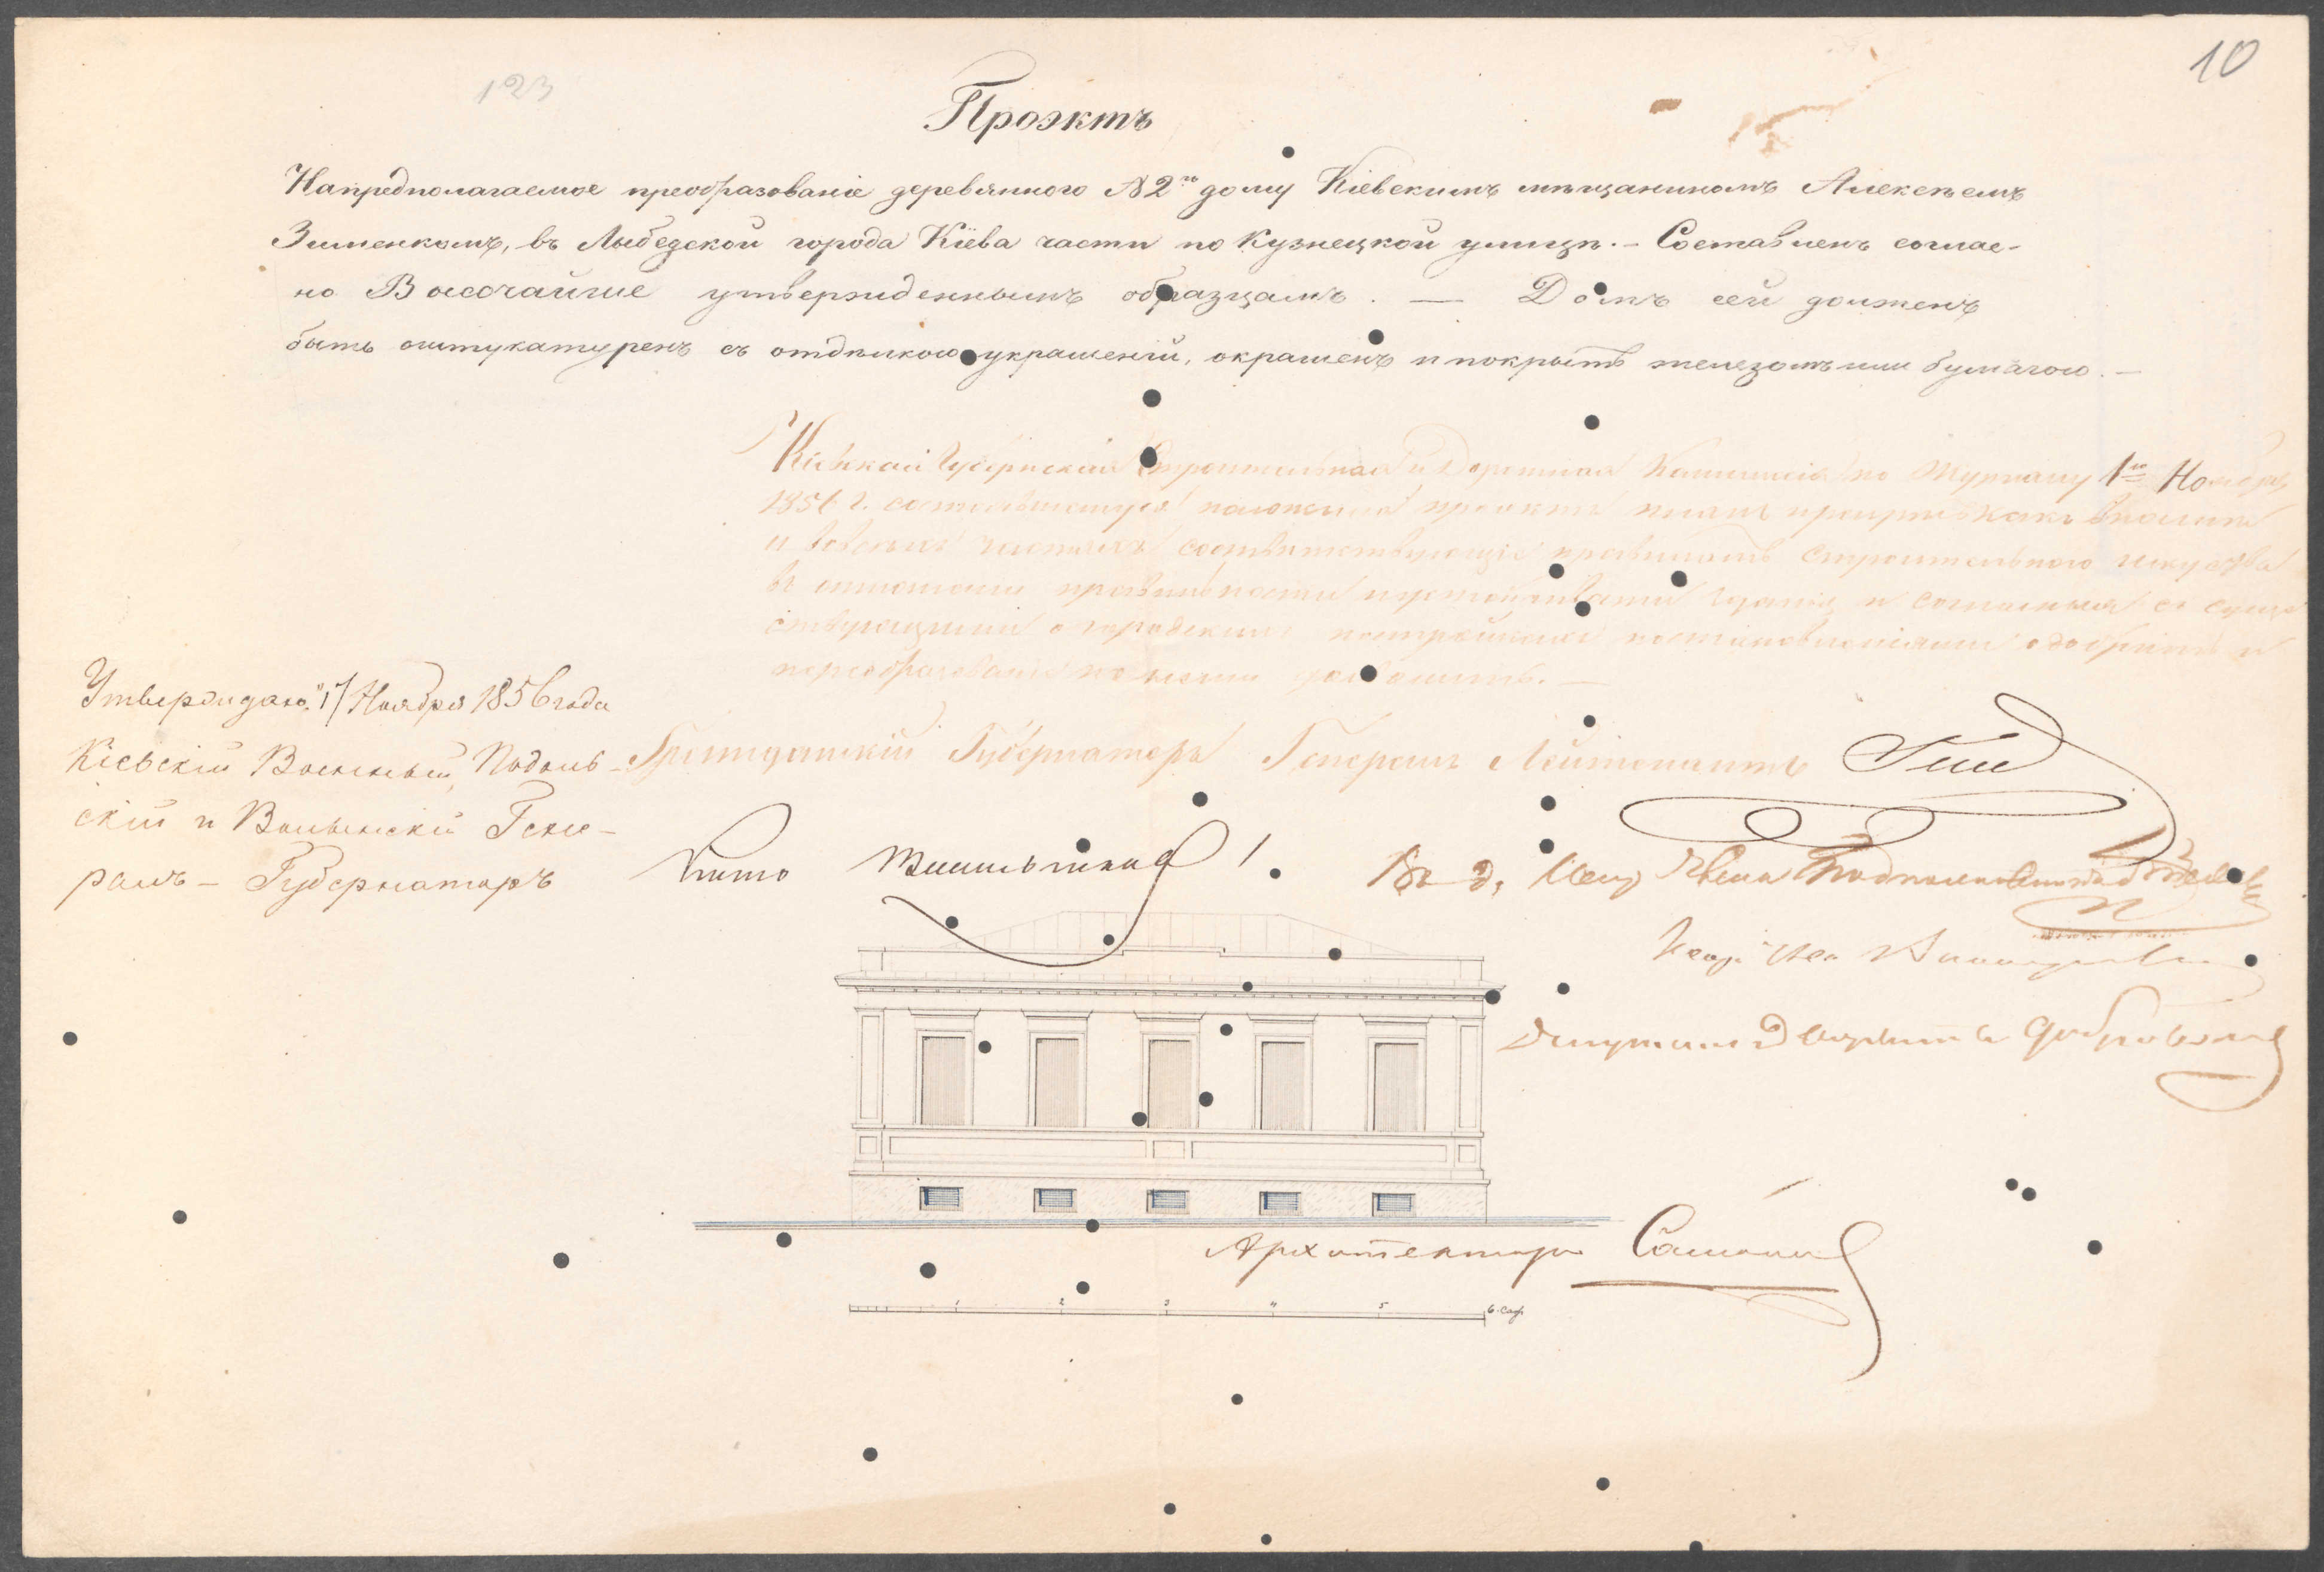 10
123
Проэктъ
На предполагаемое преобразованіе деревяннаго №2го дому Кіевскимъ мѣщаниномъ Алексѣемъ
Зименкомъ, въ Лыбедской города Кіева части по Кузнецкой улицѣ. – Составленъ соглас-
но Высочайше утвержденнымъ образцамъ. — Домъ сей долженъ
быть оштукатуренъ съ отдѣлкою украшеній, окрашенъ и покрытъ железомъ или бумагою. –
Кіевская Губернская Строительная и Дорожная Коммисія по Журналу 1го Ноября
1856 г. состоявшемуся положила проэктъ
и во всѣхъ частяхъ соотвѣтствующіе правиламъ Строительнаго искуства
въ отношеніи правильности и устойчивости зданія и согласныя съ суще
ствующими о городскихъ постройкахъ постановленіями одобрить и
преобразованіе по нему дозволить. —
Утверждаю. "17" Ноября 1856 года
Кіевскій Военный, Подоль-
скій и Волынскій Гене-
ралъ – Губернаторъ
Гражданскій Губернаторъ Генералъ Лейтенантъ
Архитекторъ
1 2 3 4 5 6 саж.